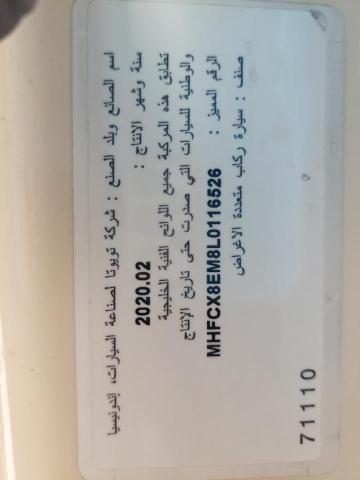 اسم الصانع وبلد الصنع : شركة تويوتا لصناعة السيارات، إندونيسيا
سنة وشهر الإنتاج : 2020.02
تطابق هذه المركبة جميع اللوائح الفنية الخليجية
والوطنية للسيارات التي صدرت حتى تاريخ الإنتاج
الرقم المميز : MHFCX8EM8L0116526
صنف : سيارة ركاب متعددة الاغراض
71110